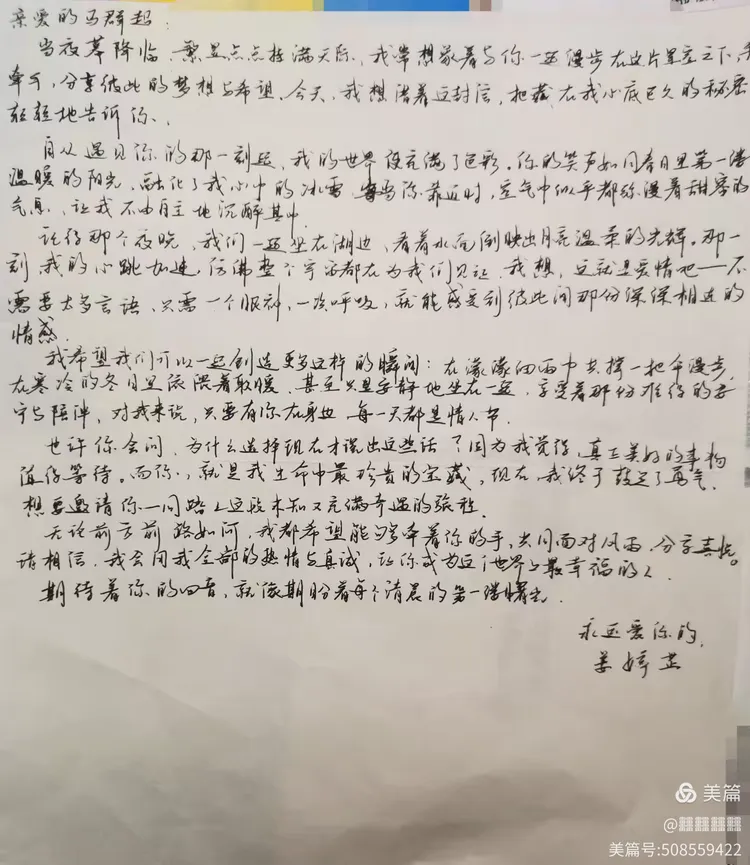 亲爱的马群超：
当夜幕降临，繁星点点挂满天际，我常想象着与你一起漫步在这片星空之下，手
牵手，分享彼此的梦想与希望。今天，我想借着这封信，把藏在我心底已久的秘密
轻轻地告诉你、
自从遇见你的那一刻起，我的世界便充满了色彩。你的笑声如同春日里第一缕
温暖的阳光，融化了我心中的冰雪 每当你靠近时，空气中似乎都弥漫着甜蜜的
气息，让我不由自主地沉醉其中
记得那个夜晚，我们一起坐在湖边，看着水面倒映出月亮温柔的光辉。那一
刻，我的心跳加速，仿佛整个宇宙都在为我们见证。我想，这就是爱情吧——不
需要太多言语，只需一个眼神，一次呼吸，就能感受到彼此间那份深深相连的
情感.
我希望我们可以一起创造更多这样的瞬间：在濛濛细雨中共撑一把伞漫步，
在寒冷的冬日里依偎着取暖，甚至只是安静地坐在一起，享受着那份难得的安
宁与陪伴，对我来说，只要有你在身边，每一天都是情人节.
也许你会问，为什么选择现在才说出这些话？因为我觉得，真正美好的事物
值得等待。而你，就是我生命中最珍贵的宝藏，现在，我终于鼓足了勇气，
想要邀请你一同踏上这段未知又充满奇遇的旅程.
无论前方前路如何，我都希望能够牵着你的手，共同面对风雨，分享喜悦。
请相信，我会用我全部的热情与真诚，让你成为这个世界上最幸福的人.
期待着你的回音，就像期盼着每个清晨的第一缕曙光.
永远爱你的，
姜婷芷
美篇
美篇号:508559422